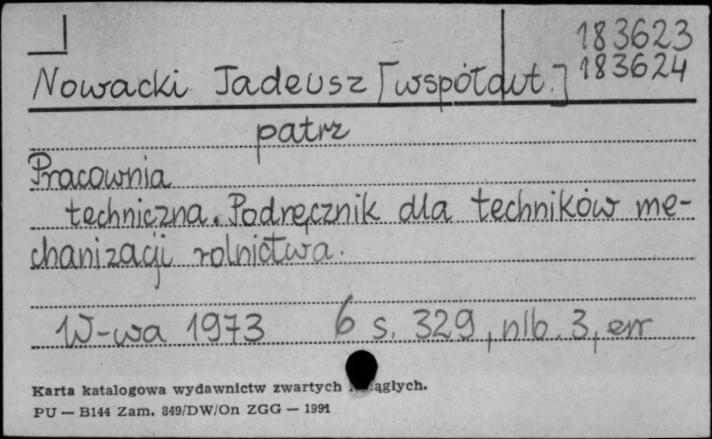 183623
Nowacki Tadeusz [współaut.] 183624
patrz
Pracownia
techniczna. Podręcznik dla techników me-
chanizacji rolnictwa.
W-wa 1973 6 s. 329, nlb. 3, err
Karta katalogowa wydawnictw zwartych
PU — B144 Zam. 849/DW/On ZGG — 1991